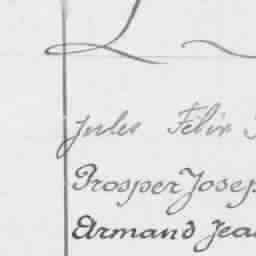 Jules Félix
Prosper Josep
Armand Jea